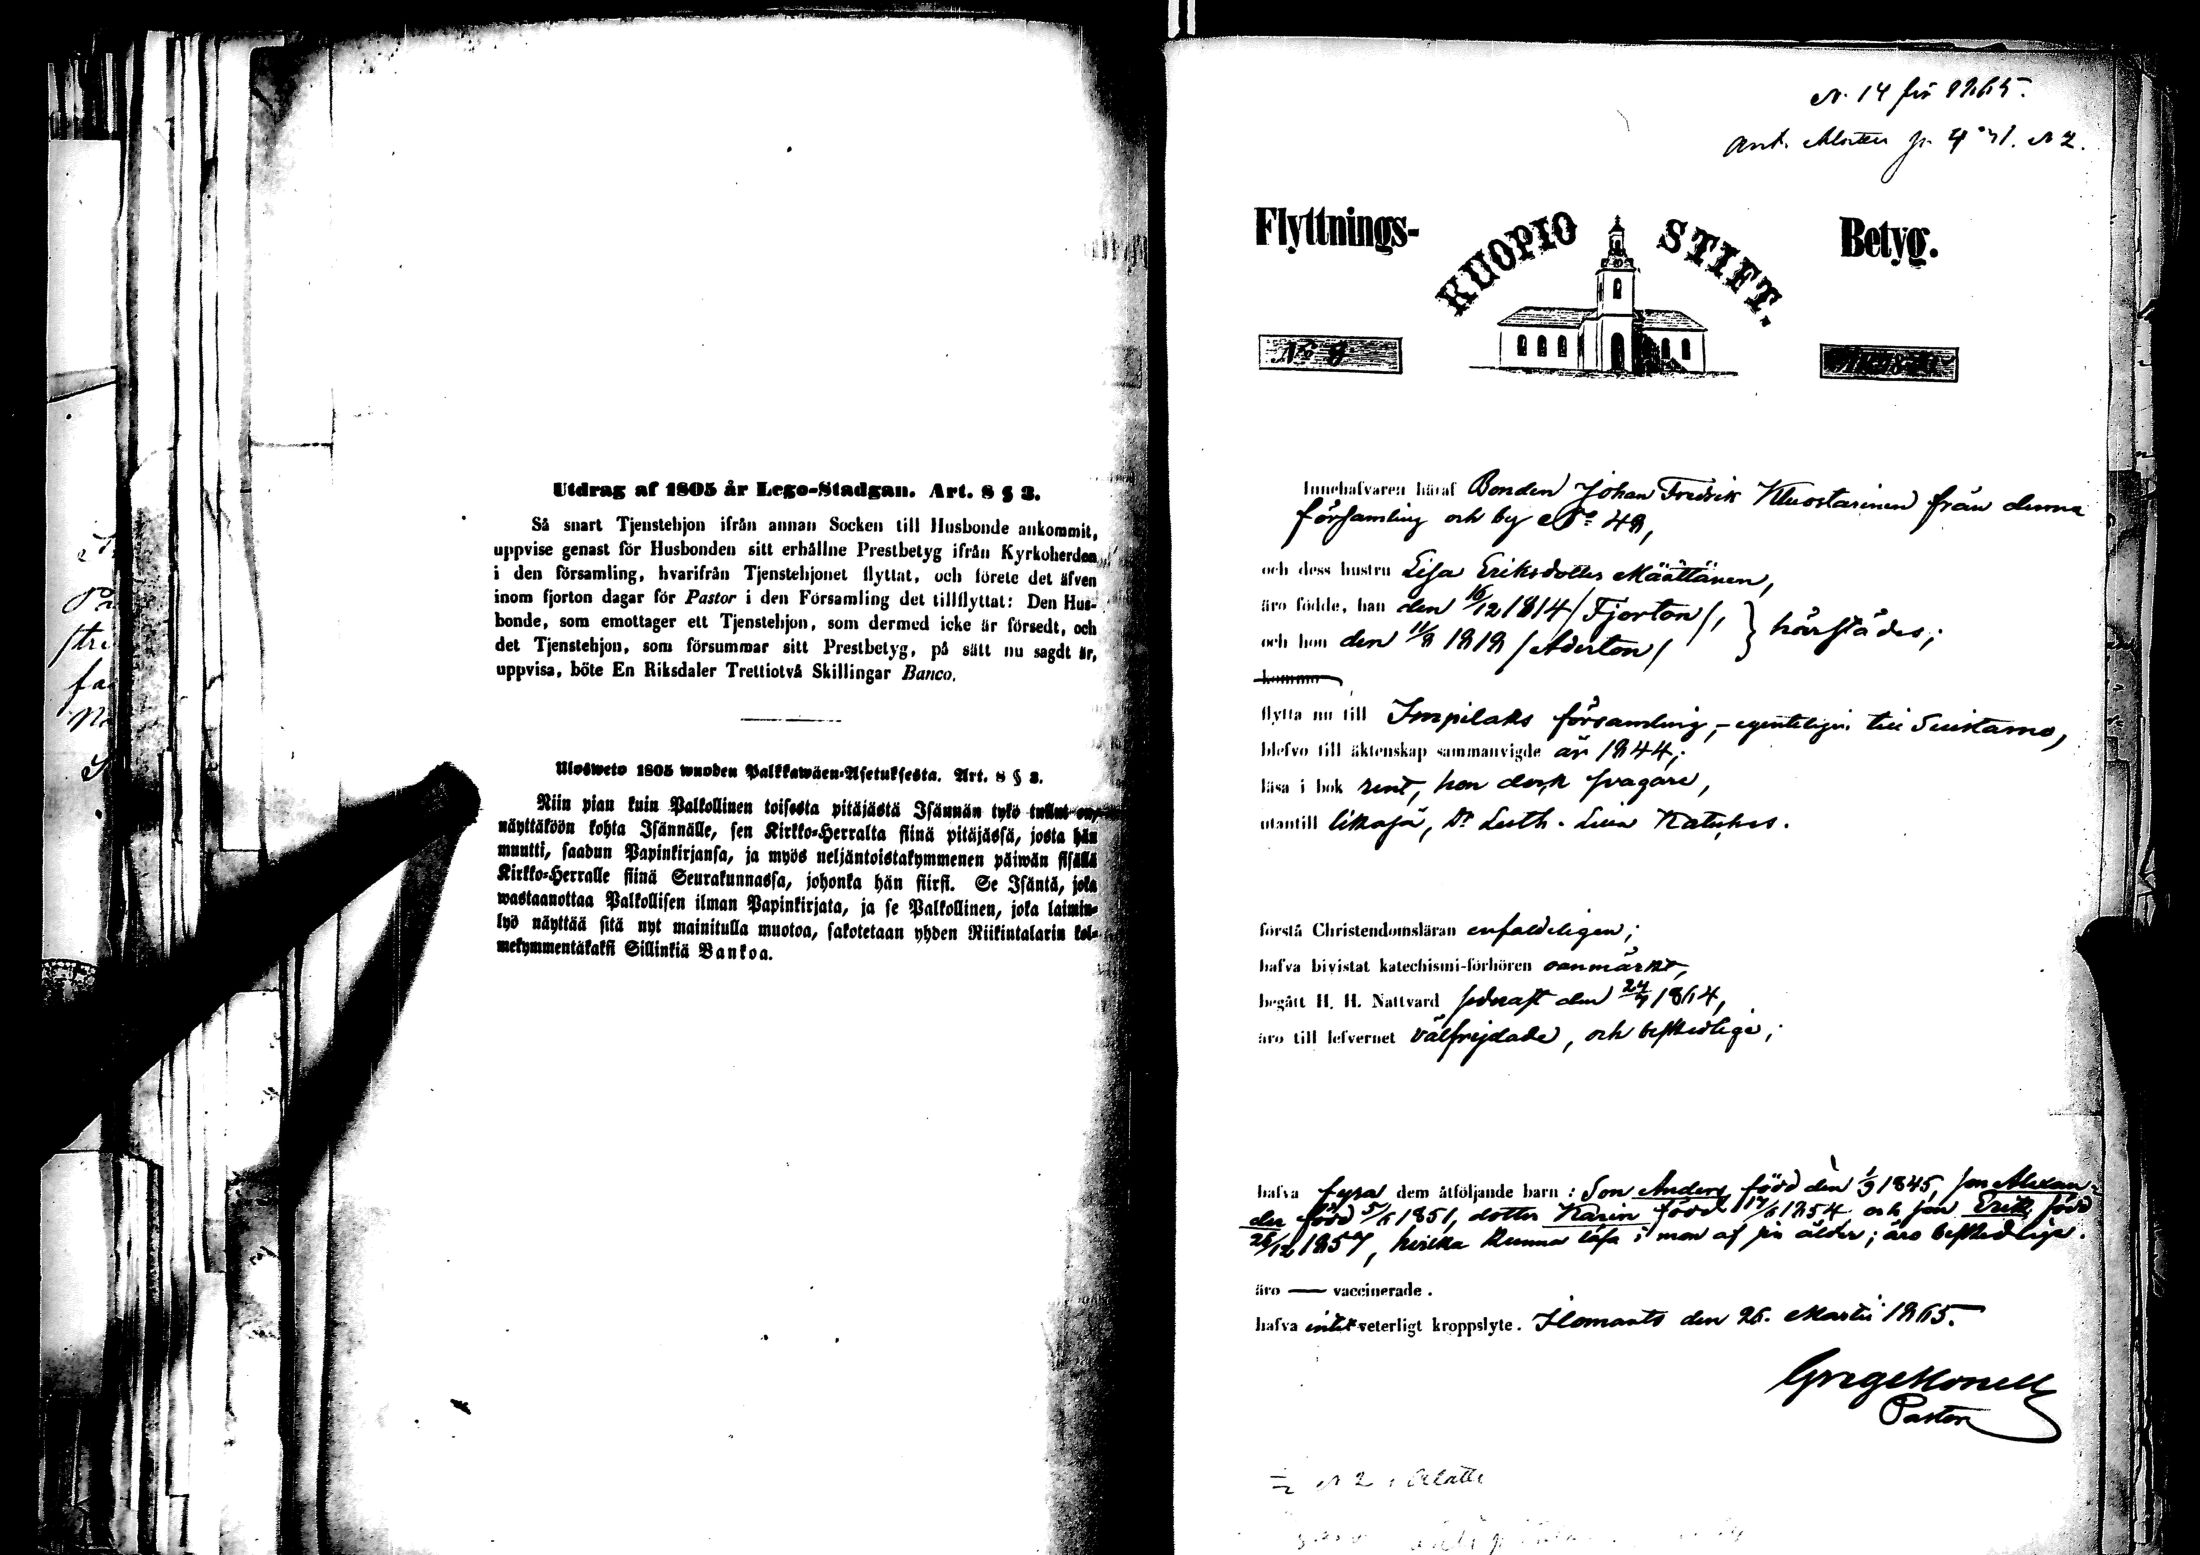 Utdrag af 1805 år Lego-Stadgan. Art. 8 § 3.
Så snart Tjenstehjon ifrån annan Socken till Husbonde ankommit,
uppvise genast för Husbonden sitt erhållne Prestbetyg ifrån Kyrkoherden
i den församling, hvarifrån Tjenstehjonet flyttat, och förete det äfven
inom fjorton dagar för Pastor i den Församling det tillflyttat: Den Hus-
bonde, som emottager ett Tjenstehjon, som dermed icke är försedt, och
det Tjenstehjon, som försummar sitt Prestbetyg, på sätt nu sagdt är,
uppvisa, böte En Riksdaler Trettiotvå Skillingar Banco.
Ulosweto 1805 wuoden Palkkawäen-Asetuksesta. Art. 8 § 3.
Niin pian kuin Palkollinen toisesta pitäjästä Isännän tykö tullut on,
näyttäköön kohta Isännälle, sen Kirkko-Herralta siinä pitäjässä, josta hän
muutti, saadun Papinkirjansa, ja myös neljäntoistakymmenen päiwän sisällä
Kirkko-Herralle siinä Seurakunnassa, johonka hän siirsi. Se Isäntä, joka
wastaanottaa Palkollisen ilman Papinkirjata, ja se Palkollinen, joka laimin-
lyö näyttää sitä nyt mainitulla muotoa, sakotetaan yhden Riikintalarin kol-
mekymmentäkaksi Sillinkiä Bankoa.
N. 14 för 1865.
Ant. p. 471. N 2.
Flyttnings- KUOPIO STIFT. Betyg.
No 8
Innehafvaren häraf Bonden Johan Fredrik Kluostarinen från denna
församling och by No 48,
och dess hustru Lisa Eriksdotter Määttänen,
äro födde, han den 16/12 1814 /Fjorton/,
och hon den 11/8 1818 /Aderton/ } härstädes;
komma
flytta nu till Impilaks församling, - egentligen till Suistamo,
blefvo till äktenskap sammanvigde år 1844;
läsa i bok rent, hon dock svagare,
utantill likaså, Dr Luth. Lilla Kateches.
förstå Christendomsläran enfaldeligen;
hafva bivistat katechismi-förhören oanmärkt,
begått H. H. Nattvard sednast den 24/7 1864,
äro till lefvernet välfrejdade, och beskedlige;
hafva fyra dem åtföljande barn: Son Anders född den 1/9 1845, son Alexan-
der född 5/6 1851, dotter Karin född 17/6 1854 och son Erik född
26/12 1857, hvilka kunna läsa i mon af sin ålder; äro beskedlige.
äro — vaccinerade.
hafva intet veterligt kroppslyte. Ilomants den 26. Martii 1865.
Pastor
N 2